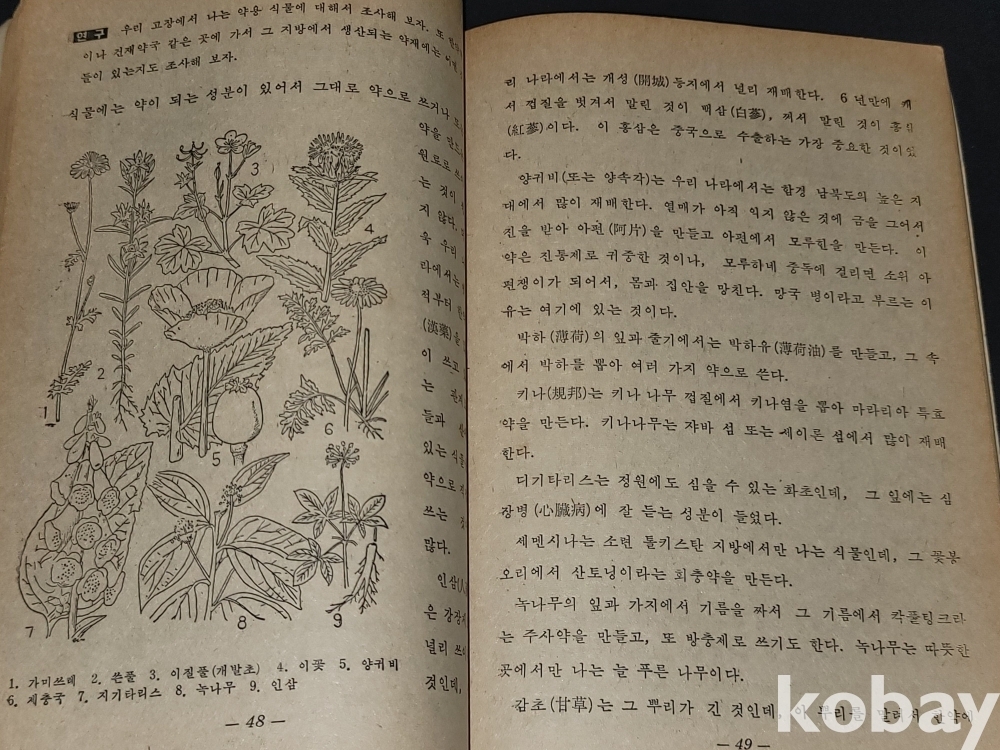 연 구 우리 고장에서 나는 약용 식물에 대해서 조사해 보자. 또
이나 건재약국 같은 곳에 가서 그 지방에서 생산되는 약재에는
들이 있는지도 조사해 보자.
식물에는 약이 되는 성분이 있어서 그대로 약으로 쓰거나
약을
원료로
는 것이
지 않다.
욱 우리
라에서는
적부터
(漢藥)을
이 쓰고
는
들과
있는 식물
약으로
쓰는
많다.
인삼
은 강장
널리
것인데,
1
2
3
4
5
6
7
8
9
1. 가미쓰레 2. 쓴풀 3. 이질풀(개발초) 4. 이꽃 5. 양귀비
6. 제충국 7. 지기타리스 8. 녹나무 9. 인삼
— 48 —
리 나라에서는 개성(開城) 등지에서 널리 재배한다. 6 년만에 캐
서 껍질을 벗겨서 말린 것이 백삼(白蔘), 쪄서 말린 것이 홍삼
(紅蔘)이다. 이 홍삼은 중국으로 수출하는 가장 중요한 것이었
다.
양귀비(또는 양속각)는 우리 나라에서는 함경 남북도의 높은 지
대에서 많이 재배한다. 열매가 아직 익지 않은 것에 금을 그어서
진을 받아 아편(阿片)을 만들고 아편에서 모루힌을 만든다. 이
약은 진통제로 귀중한 것이나, 모루히네 중독에 걸리면 소위 아
편쟁이가 되어서, 몸과 집안을 망친다. 망국 병이라고 부르는 이
유는 여기에 있는 것이다.
박하(薄荷)의 잎과 줄기에서는 박하유(薄荷油)를 만들고, 그 속
에서 박하를 뽑아 여러 가지 약으로 쓴다.
키나(規邦)는 키나 나무 껍질에서 키나염을 뽑아 마라리아 특효
약을 만든다. 키나나무는 쟈바 섬 또는 세이론 섬에서 많이 재배
한다.
디기타리스는 정원에도 심을 수 있는 화초인데, 그 잎에는 심
장병(心臟病)에 잘 듣는 성분이 들었다.
세멘시나는 소련 톨키스탄 지방에서만 나는 식물인데, 그 꽃봉
오리에서 산토닝이라는 회충약을 만든다.
녹나무의 잎과 가지에서 기름을 짜서 그 기름에서 칵풀팅크라
는 주사약을 만들고, 또 방충제로 쓰기도 한다. 녹나무는 따뜻한
곳에서만 나는 늘 푸른 나무이다.
감초(甘草)는 그 뿌리가 긴 것인데, 이 뿌리를 말려서 한약에
— 49 —
kobay